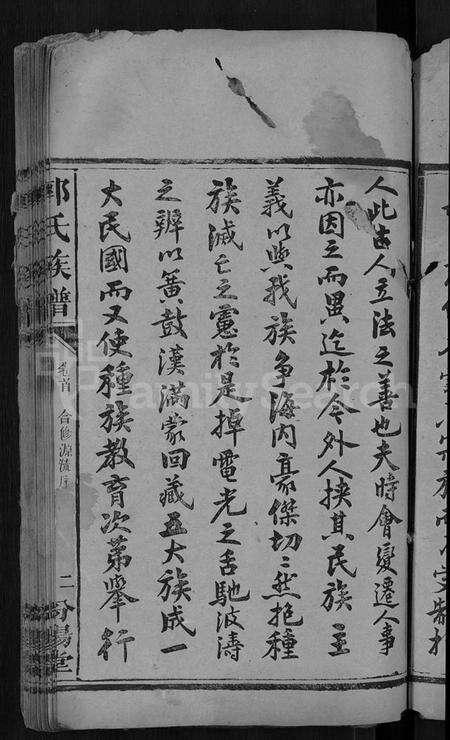 人此古人立法之善也夫時會變遷人事
亦因之而異迄於今外人挾其民族主
義以與我族爭海內豪傑切〻然抱種
族滅亡之憲於是掉電光之舌馳波濤
之辨以簧鼓漢滿蒙回藏五大族成一
大民國而又使種族教育次第舉行
郭氏族譜
卷首 合修源流序
二
汾陽堂
FamilySearch